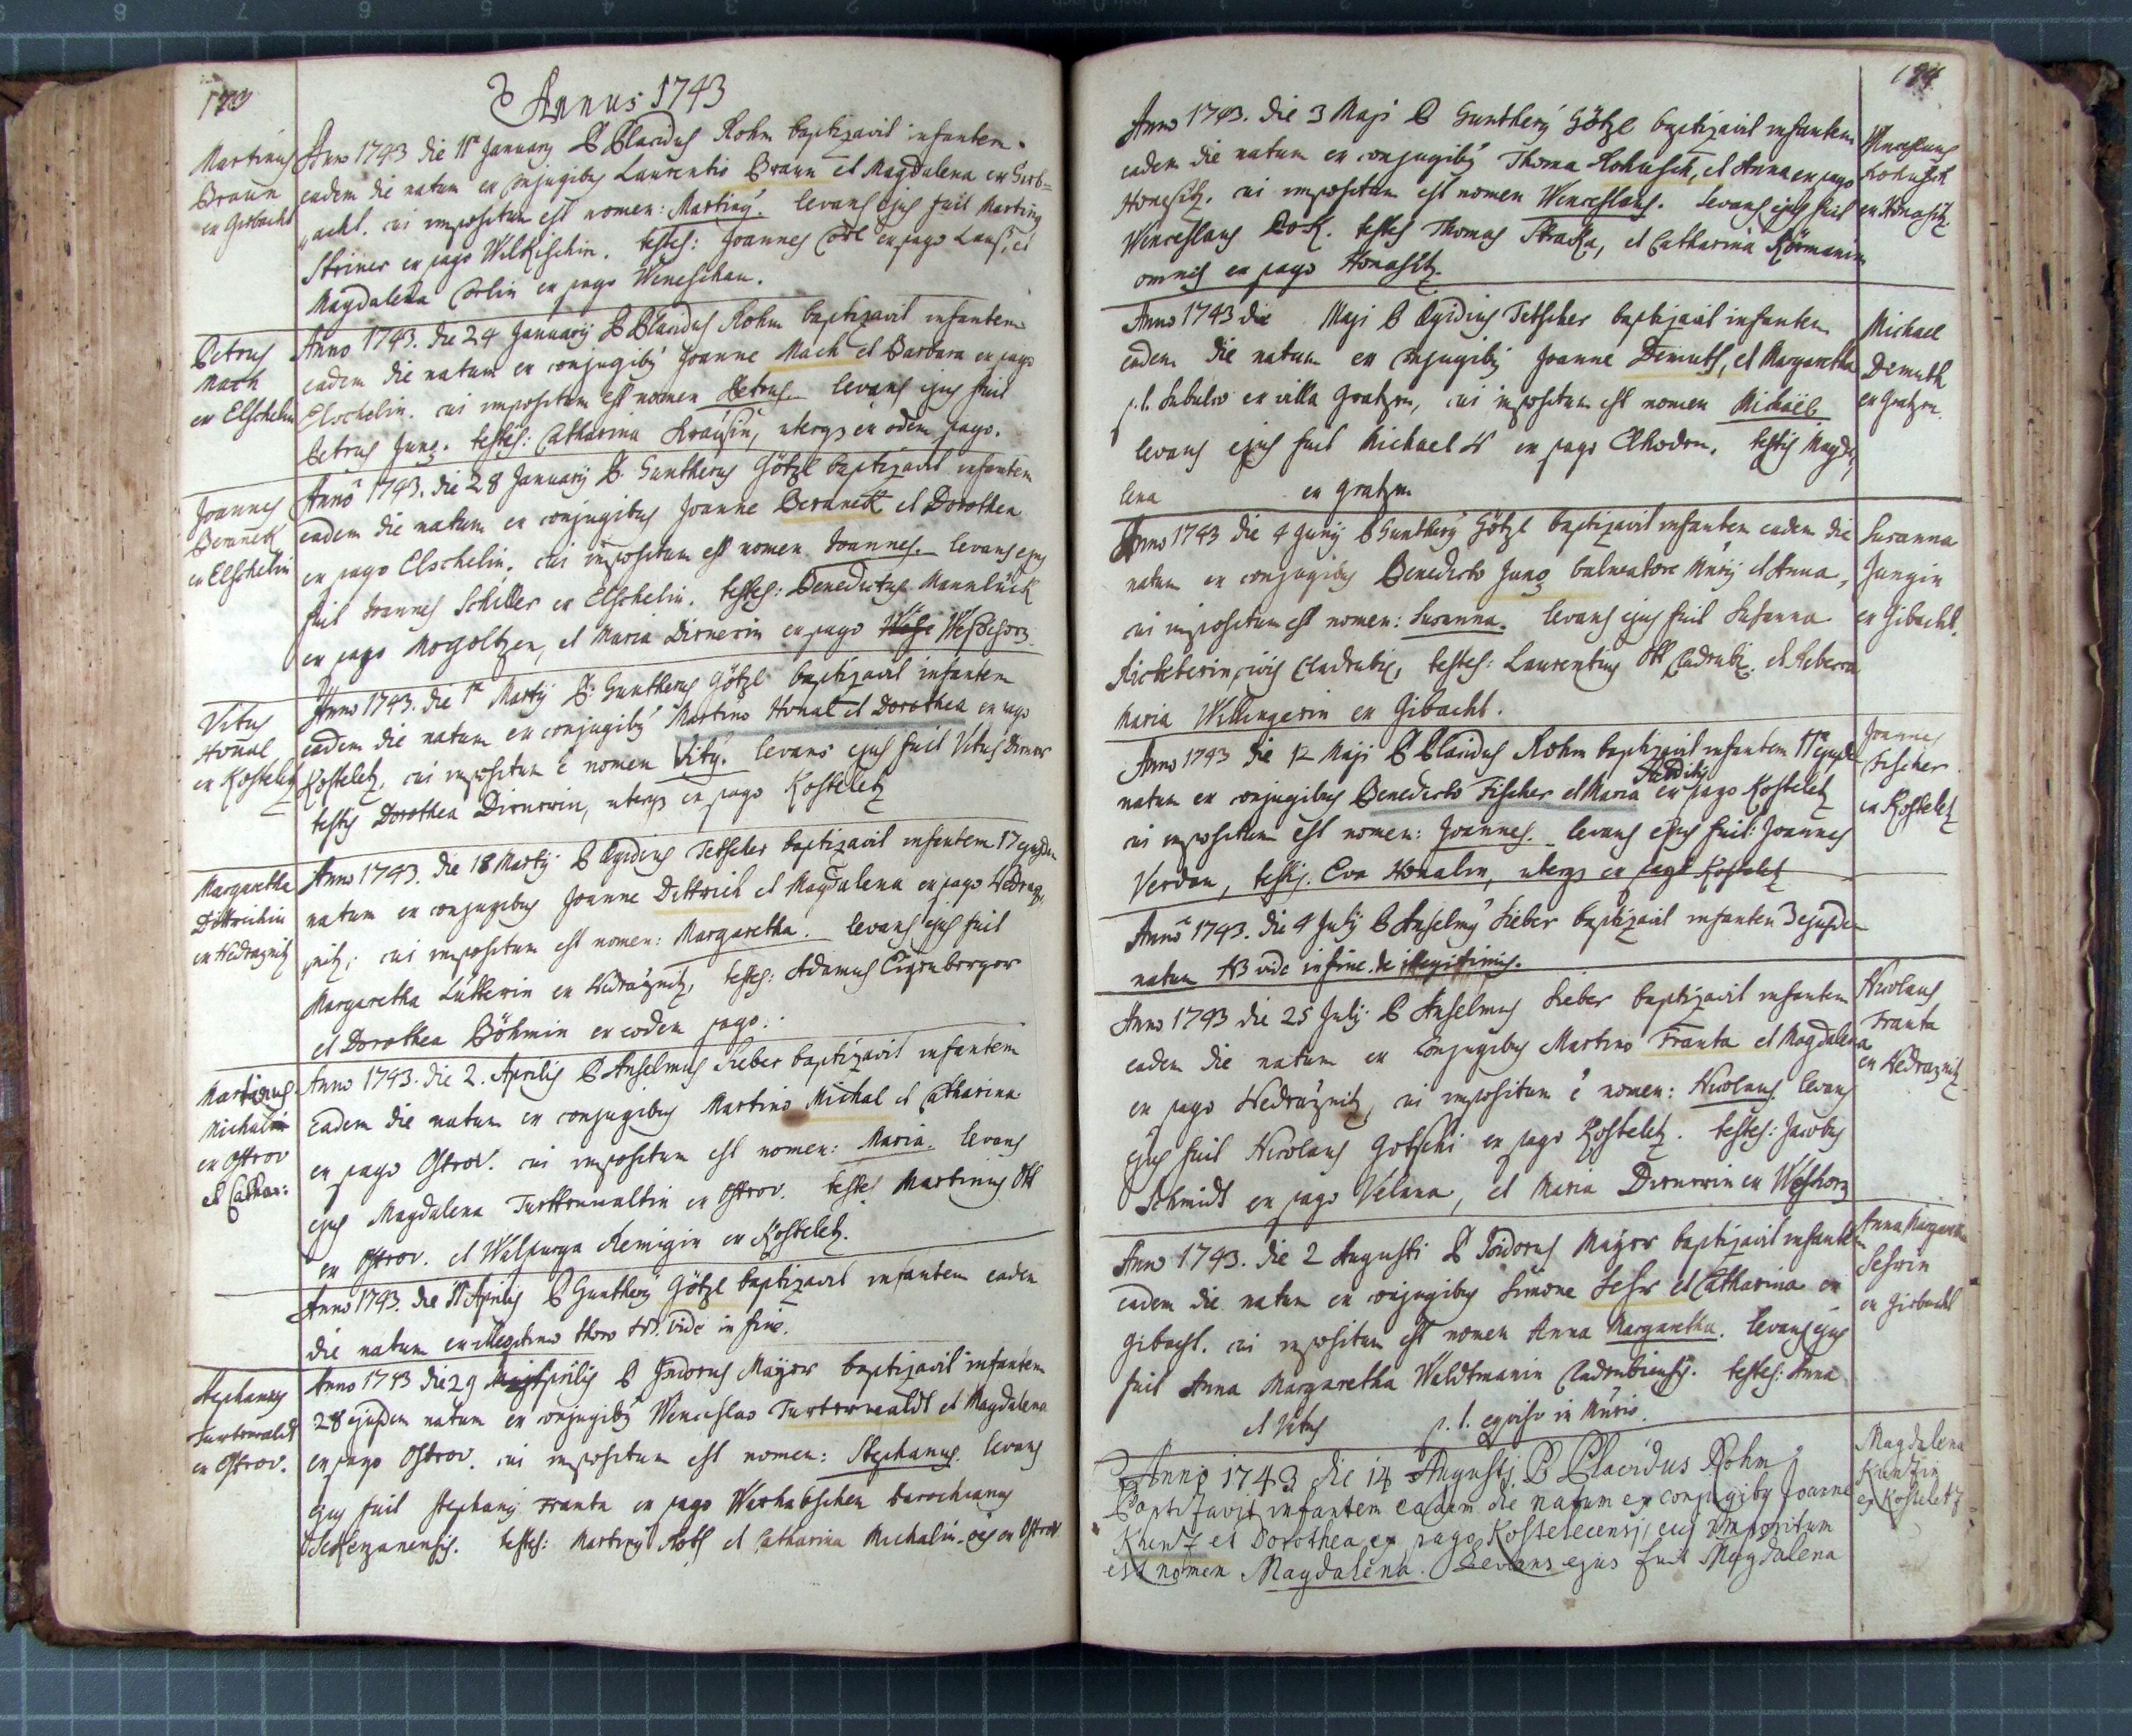 173
Annus 1743
Martinus
Braun
ex Gibacht
Anno 1743 die 11 January P Placidus Rohm baptizavit infantem
eadem die natum ex conjugibus Laurentio Braun et Magdalena ex Gib=
acht. cui impositum est nomen: Martinus. levans ejus fuit Martinus
Steiner ex pago Wilkischin. testes: Joannes ex pago et
Magdalena ex pago Weneschau.
Petrus
Mach
ex Elschelin
Anno 1743. die 24 January P Placidus Rohm baptizavit infantem
eadem die natum ex conjugibus Joanne Mach et Barbara ex pago
Elschelin. cui impositum est nomen Petrus. levans ejus fuit
Petrus Jung. testes: Catharina uterque ex eodem pago.
Joannes
Beranek
ex Elschelin
Anno 1743. die 28 January P. Guntherus Götzl baptizavit infantem
eadem die natum ex conjugibus Joanne Beranek et Dorothea
ex pago Elschelin. cui impositum est nomen Joannes. levans ejus
fuit Joannes Schiller ex Elschelin. testes: Benedictus Mannlück
ex pago Mogoltzen, et Maria Dirnerin ex pago Weshorz.
Vitus
Honal
ex Kosteletz
Anno 1743. die 1 Martij P: Guntherus Götzl baptizavit infantem
eadem die natum ex conjugibus Martino Honal et Dorothea ex pago
Kosteletz, cui impositum e nomen Vitus. levans ejus fuit Vitus Dirner
testis Dorothea Dirnerin, uterque ex pago Kosteletz
Margaretha
Dittrichin
ex Nedraznitz
Anno 1743. die 18 Martij P Egidius Tetscher baptizavit infantem 17 ejusdem
natum ex conjugibus Joanne Dittrich et Magdalena ex pago Nedraz,
nitz; cui impositum est nomen: Margaretha. levans ejus fuit
Margaretha Lutterin ex Nedraznitz, testes: Adamus Eigenberger
et Dorothea Böhmin ex eodem pago.
Martinus
Michal
ex Ostrov
et Cathar:
Anno 1743. die 2. Aprilis P Anselmus Sieber baptizavit infantem
Eadem die natum ex conjugibus Martino Michal et Catharina
ex pago Ostrov. cui impositum est nomen: Maria. levans
ejus Magdalena ex Ostrov. testes Martinus Ott
ex Ostrov. et Walpurga Remigin ex Kosteletz.
Anno 1743. die 11 Aprilis P Guntherus Götzl baptizavit infantem eadem
die natum ex illegitimo thoro NB. vide in fine.
Stephanus
Turterwaldt
ex Ostrov.
Anno 1743 die 29 Aprilis P Isidorus Mayer baptizavit infantem
28 ejusdem natum ex conjugibus Wenceslao Turterwaldt et Magdalena
ex pago Ostrov. cui impositum est nomen: Stephanus. levans
ejus fuit Stephanus Franta ex pago parochianus
testes: Martinus Roth et Catharina Michalin ex Ostrov
174
Anno 1743. die 3 Maji P Guntherus Götzl baptizavit infantem
eadem die natum ex conjugibus Thoma Kohusch, et Anna ex pago
Honositz. cui impositum est nomen Wenceslaus. levans ejus fuit
Wenceslaus testes Thomas Straka, et Catharina
omnes ex pago Honositz.
Wenceslaus
Kohusch
ex Honositz
Anno 1743 die Maji P Egidius Tetscher baptizavit infantem
eadem die natum ex conjugibus Joanne Demuth, et Margaretha
p.t. Subulco ex villa Gratzen, cui impositum est nomen Michaël
levans ejus fuit Michael ex pago testis Magda,
lena ex Gratzen
Michael
Demuth
ex Gratzen.
Anno 1743 die 4 Junij P Guntherus Götzl baptizavit infantem eadem die
natum ex conjugibus Benedicto Jung balneatore et Anna,
cui impositum est nomen: Susanna. levans ejus fuit Susanna
Richterin, civis Cladrubiensis, testes: Laurentius Ott et
Maria Willingerin ex Gibacht.
Susanna
Jungin
ex Gibacht.
Anno 1743 die 12 Maji P Placidus Rohm baptizavit infantem 11 ejusdem
natum ex conjugibus Benedicto Fischer et Maria ex pago Kosteletz
cui impositum est nomen: Joannes. levans ejus fuit: Joannes
Verdan, testis. Eva Honalin, uterque ex pago Kosteletz
Joannes
Fischer
ex Kosteletz
Anno 1743. die 4 July P Anselmus Sieber baptizavit infantem 3 ejusdem
natum NB vide in fine de illegitimis.
Anno 1743 die 25 July P Anselmus Sieber baptizavit infantem
eadem die natum ex Conjugibus Martino Franta et Magdalena
ex pago Nedraznitz, cui impositum e nomen: Nicolaus. levans
ejus fuit Nicolaus Gotschi ex pago Kosteletz. testes: Jacobus
Schmidt ex pago Velana, et Maria Dirnerin ex Weshorz
Nicolaus
Franta
ex Nedraznitz
Anno 1743. die 2 Augusti P Isidorus Mayer baptizavit infantem
eadem die natum ex conjugibus Simone et Catharina ex
Gibacht. cui impositum est nomen Anna Margaretha. levans ejus
fuit Anna Margaretha Waldtmanin Cladrubiensis. testes: Anna
et Vitus p.t.
Anna Margaretha
ex Gibacht
Anno 1743 die 14 Augusti P Placidus Rohm
Baptizavit infantem eadem die natum ex conjugibus Joanne
Kuntz et Dorothea ex pago Kostelecensi, cui impositum
est nomen Magdalena. Levans ejus fuit Magdalena
Magdalena
Kuntzin
ex Kosteletz